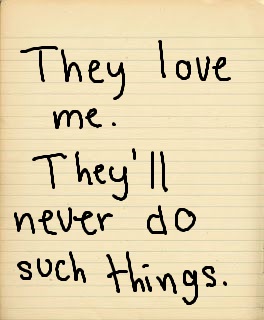 They love
me.
They'll
never do
such things.